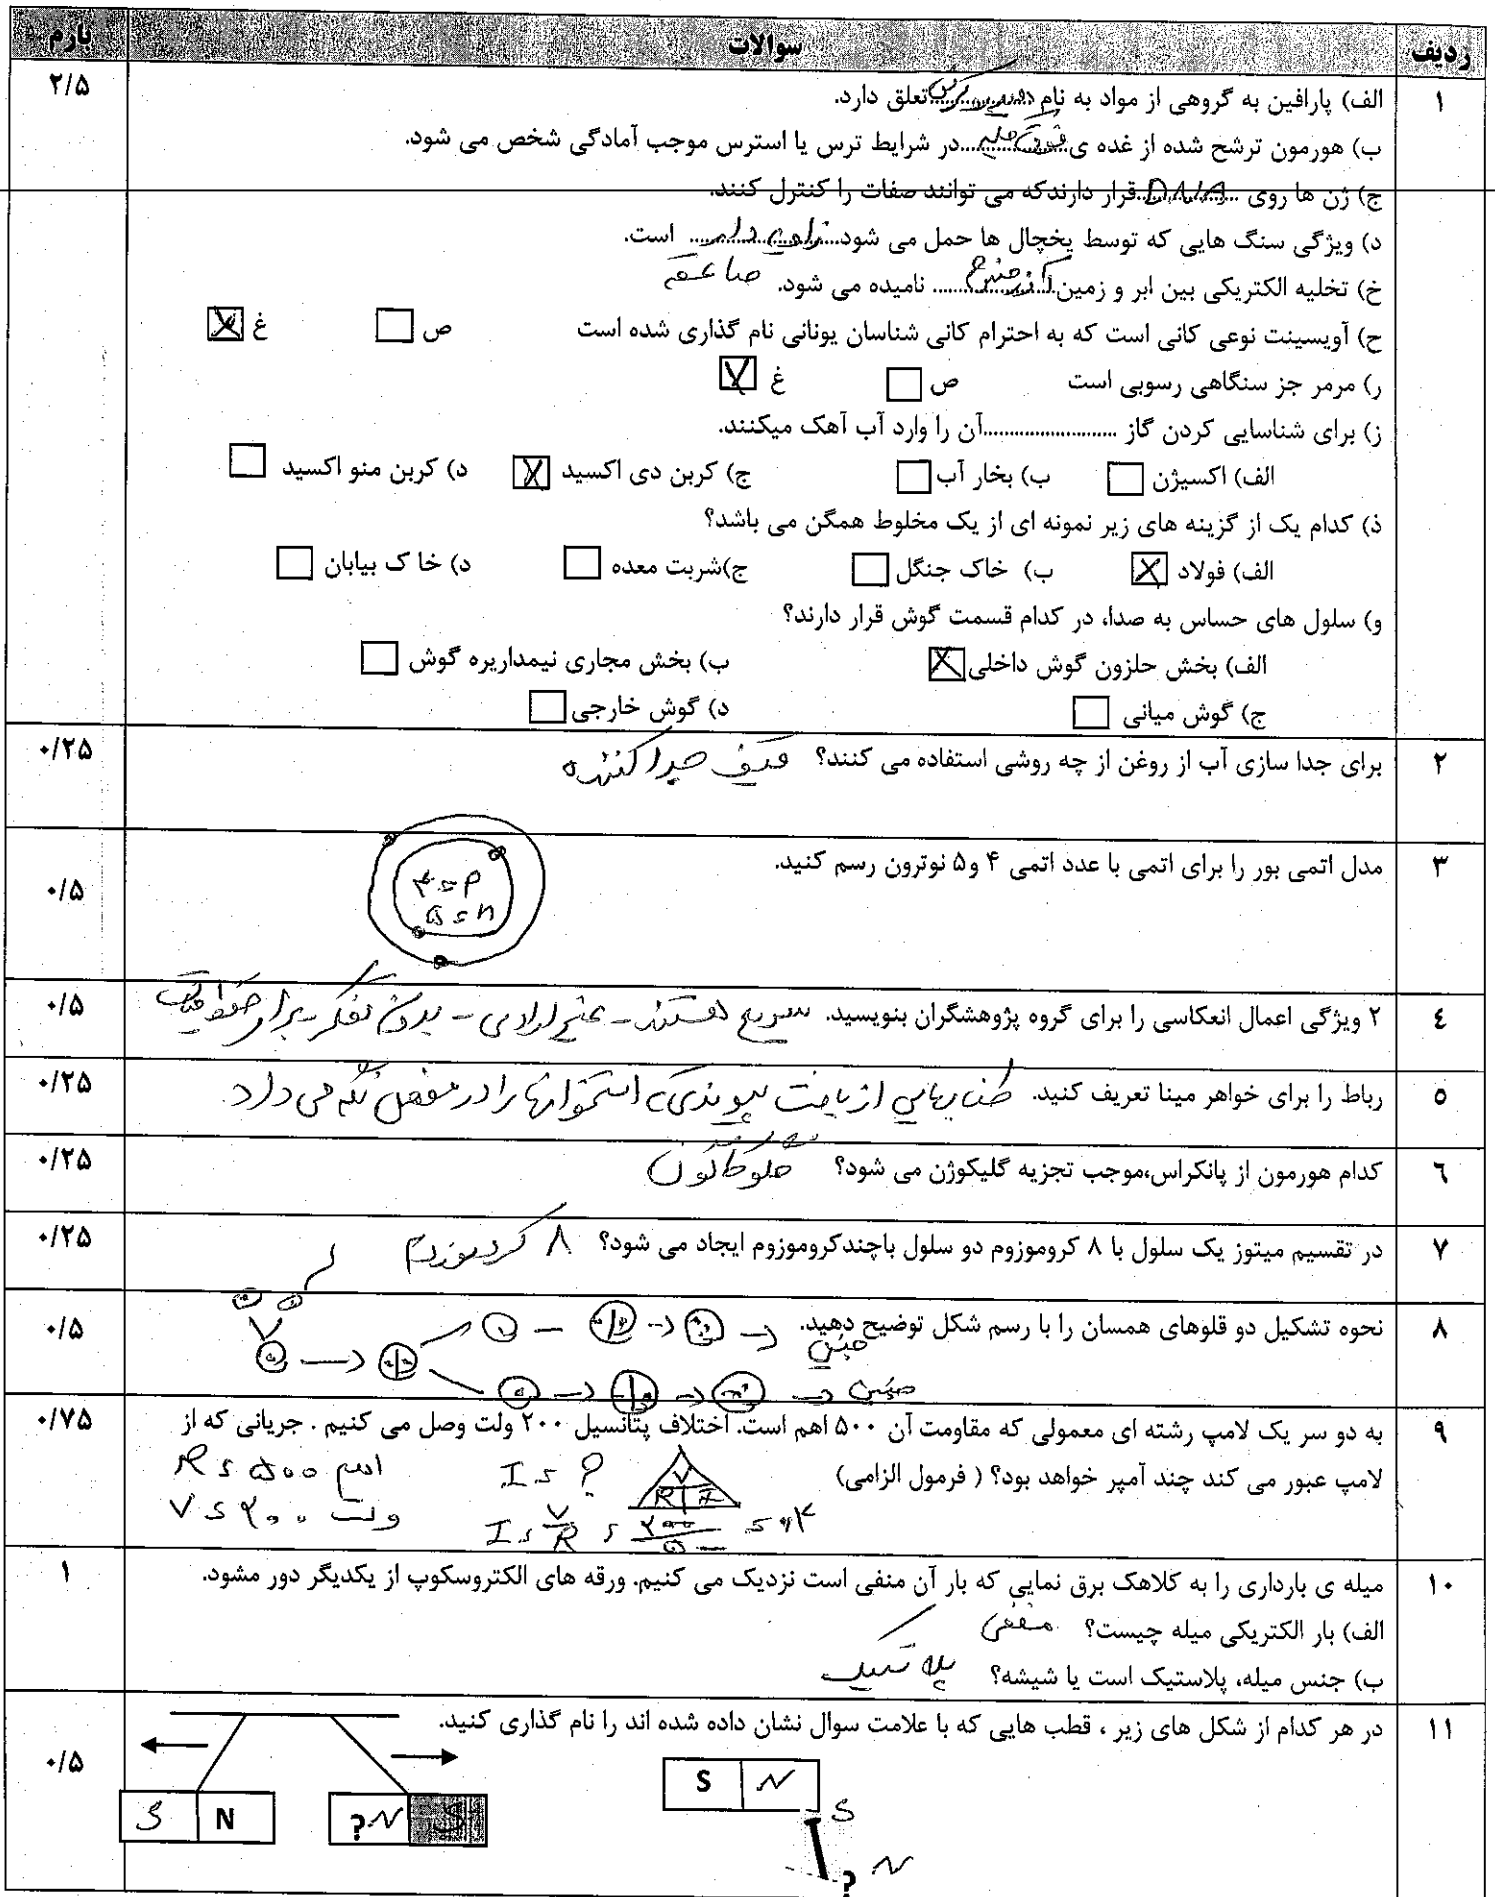 ردیف سوالات بارم
۱ الف) پارافین به گروهی از مواد به نام هیدروکربن تعلق دارد. ۲/۵
ب) هورمون ترشح شده از غده ی فوق کلیه در شرایط ترس یا استرس موجب آمادگی شخص می شود.
ج) ژن ها روی DNA قرار دارندکه می توانند صفات را کنترل کنند.
د) ویژگی سنگ هایی که توسط یخچال ها حمل می شود زاویه دار است.
خ) تخلیه الکتریکی بین ابر و زمین آذرخش نامیده می شود. صاعقه
ح) آویسینت نوعی کانی است که به احترام کانی شناسان یونانی نام گذاری شده است ص غ X
ر) مرمر جز سنگاهی رسوبی است ص غ X
ز) برای شناسایی کردن گاز ........................آن را وارد آب آهک میکنند.
الف) اکسیژن ب) بخار آب ج) کربن دی اکسید X د) کربن منو اکسید
ذ) کدام یک از گزینه های زیر نمونه ای از یک مخلوط همگن می باشد؟
الف) فولاد X ب) خاک جنگل ج)شربت معده د) خا ک بیابان
و) سلول های حساس به صدا، در کدام قسمت گوش قرار دارند؟
الف) بخش حلزون گوش داخلی X ب) بخش مجاری نیمداریره گوش
ج) گوش میانی د) گوش خارجی
۲ برای جدا سازی آب از روغن از چه روشی استفاده می کنند؟ قیف جدا کننده ۰/۲۵
۳ مدل اتمی بور را برای اتمی با عدد اتمی ۴ و۵ نوترون رسم کنید. ۰/۵
۴=p
۵=n
٤ ۲ ویژگی اعمال انعکاسی را برای گروه پژوهشگران بنویسید. سریع هستند - غیر ارادی - بدون تفکر - برای حفظ ۰/۵
٥ رباط را برای خواهر مینا تعریف کنید. طنابهایی از بافت پیوندی که استخوانها را در مفصل نگه می دارد ۰/۲۵
٦ کدام هورمون از پانکراس،موجب تجزیه گلیکوژن می شود؟ گلوکاگون ۰/۲۵
۷ در تقسیم میتوز یک سلول با ۸ کروموزوم دو سلول باچندکروموزوم ایجاد می شود؟ ۸ کروموزوم ۰/۲۵
۸ نحوه تشکیل دو قلوهای همسان را با رسم شکل توضیح دهید. ۰/۵
جنین
جنین
۹ به دو سر یک لامپ رشته ای معمولی که مقاومت آن ۵۰۰ اهم است. اختلاف پتانسیل ۲۰۰ ولت وصل می کنیم . جریانی که از ۰/۷۵
لامپ عبور می کند چند آمپر خواهد بود؟ ( فرمول الزامی) V R I I = ? R = ۵۰۰ اهم
V = ۲۰۰ ولت I = V/R = ۲۰۰/۵۰۰ = ۰/۴
۱۰ میله ی بارداری را به کلاهک برق نمایی که بار آن منفی است نزدیک می کنیم. ورقه های الکتروسکوپ از یکدیگر دور مشود. ۱
الف) بار الکتریکی میله چیست؟ منفی
ب) جنس میله، پلاستیک است یا شیشه؟ پلاستیک
۱۱ در هر کدام از شکل های زیر ، قطب هایی که با علامت سوال نشان داده شده اند را نام گذاری کنید. ۰/۵
S N
S
? N
S N ? N S